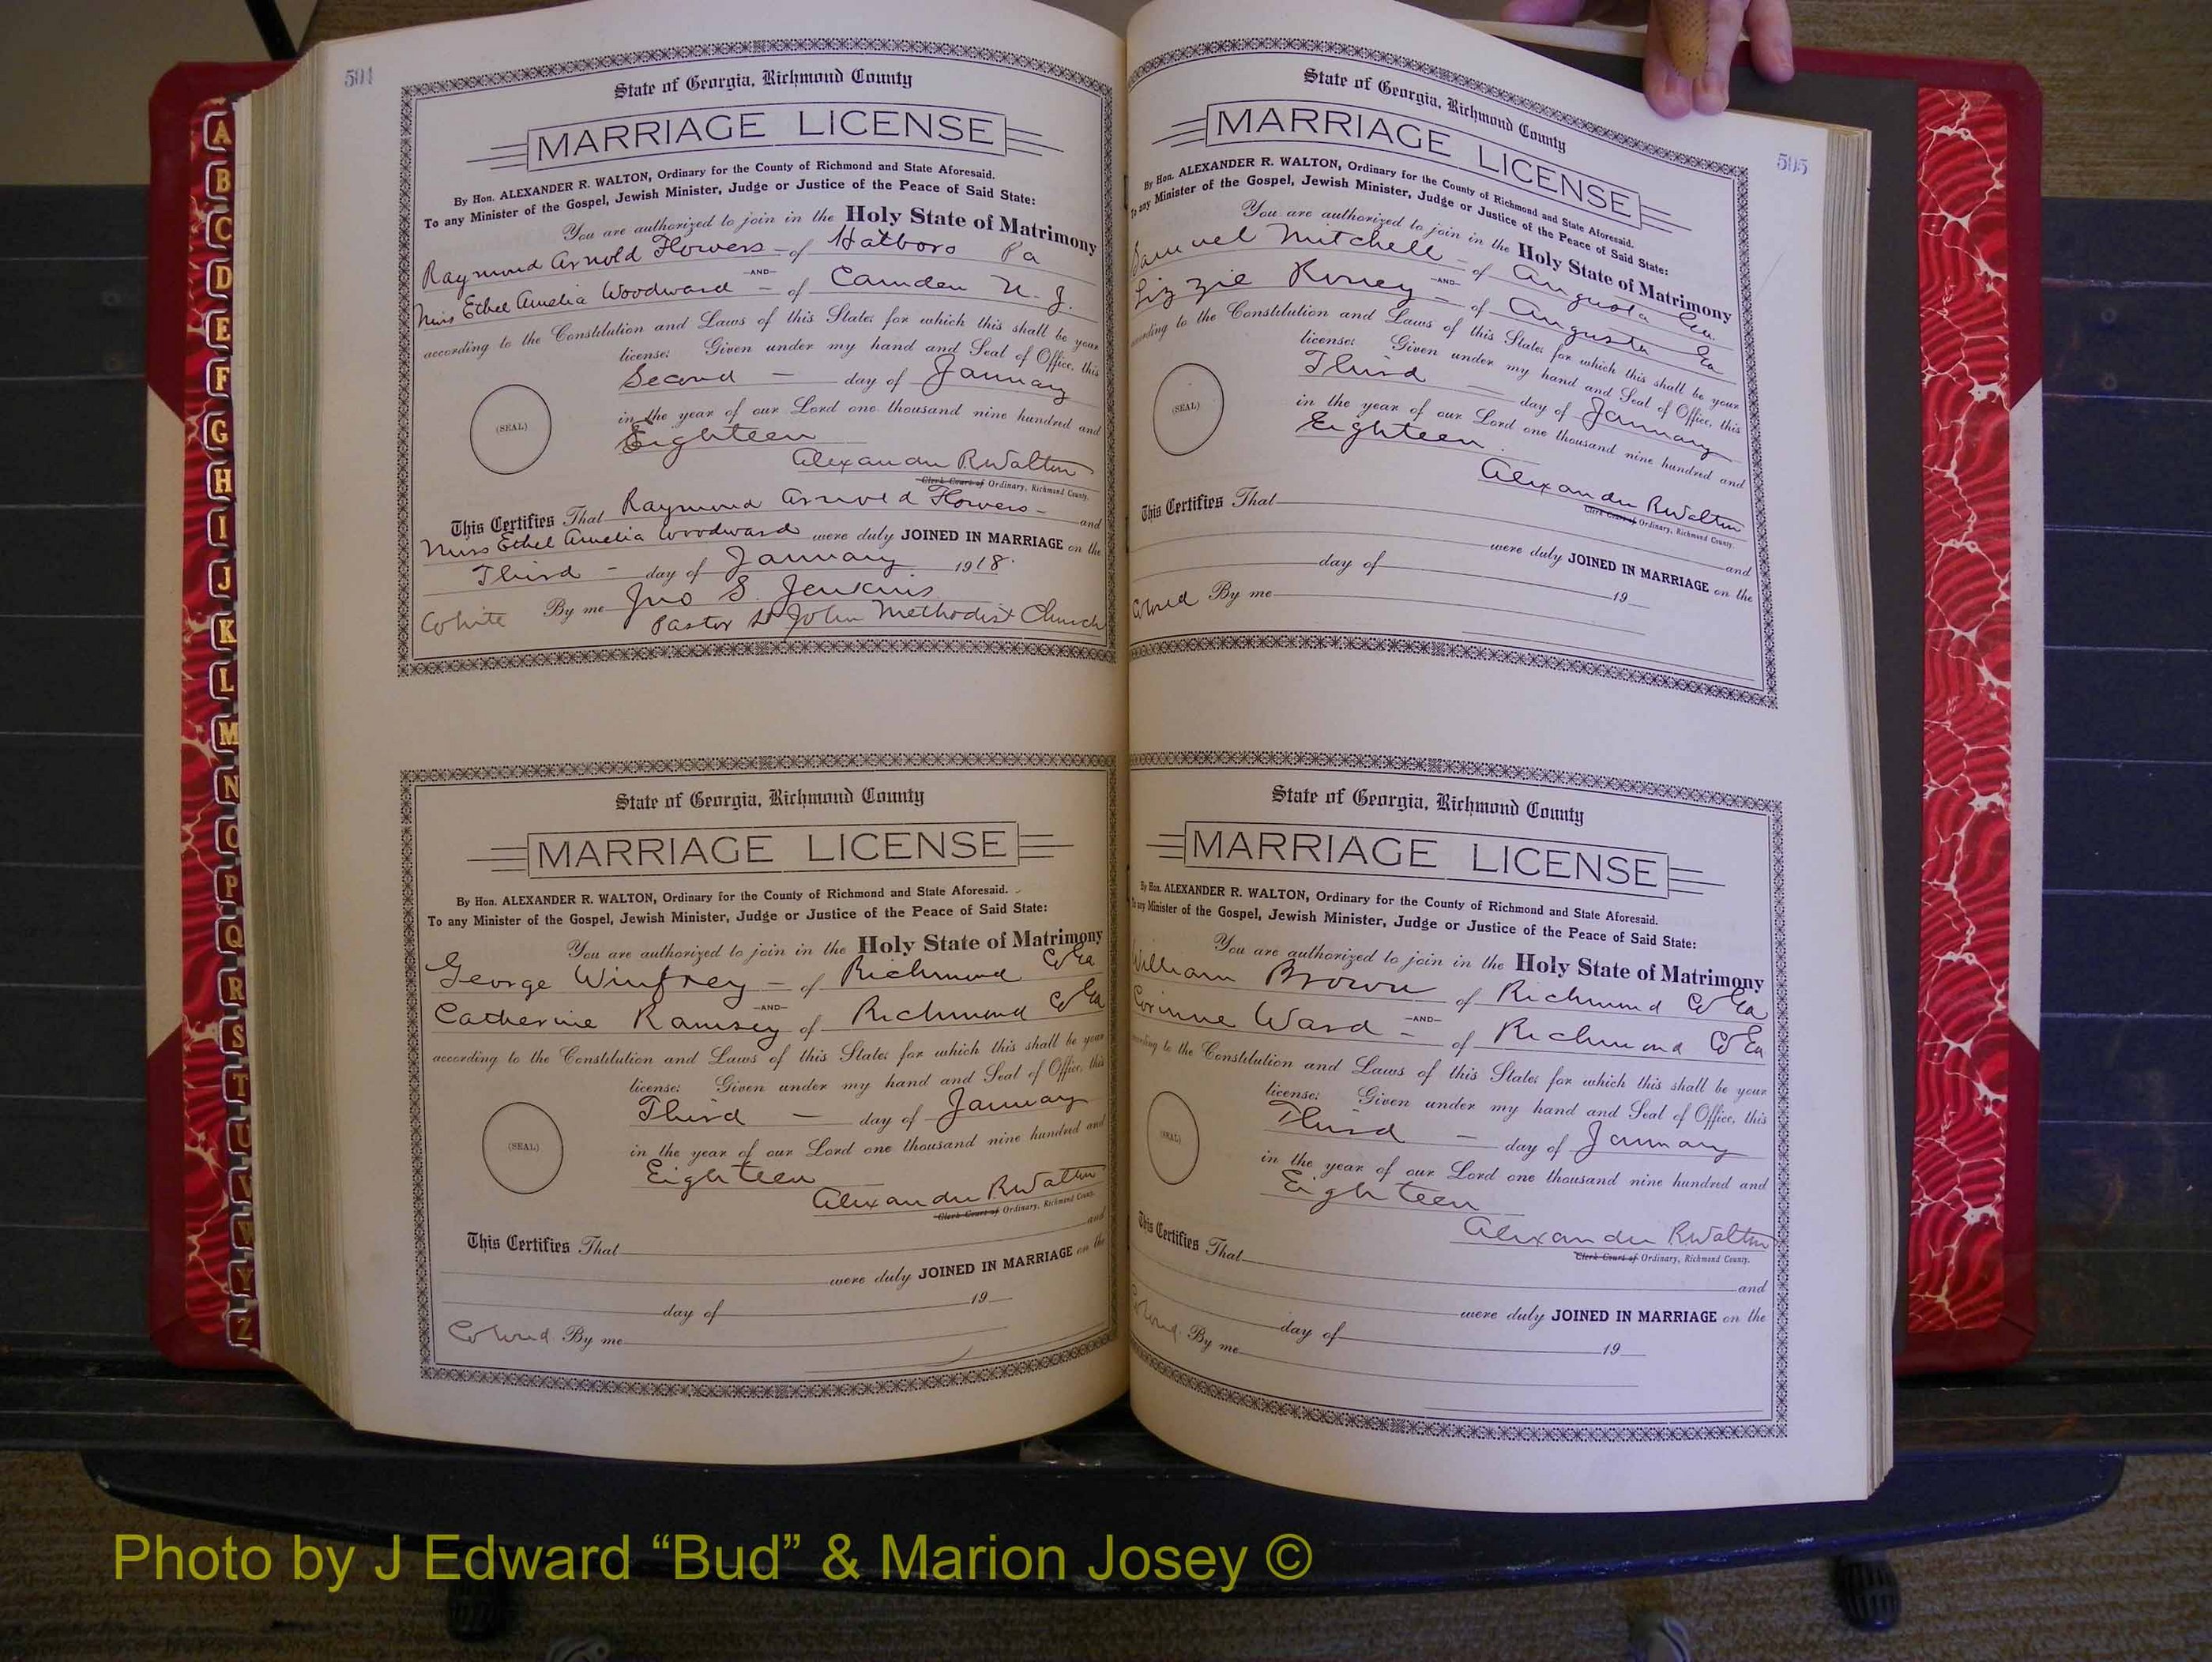 A
B
C
D
E
F
G
H
I
J
K
L
M
N
O
P
Q
R
S
T
U
V
W
Y
Z
504
State of Georgia, Richmond County
MARRIAGE LICENSE
By Hon. ALEXANDER R. WALTON, Ordinary for the County of Richmond and State Aforesaid.
To any Minister of the Gospel, Jewish Minister, Judge or Justice of the Peace of Said State:
You are authorized to join in the Holy State of Matrimony
Raymond Arnold Flowers - of Hatboro Pa
-AND-
Miss Ethel Amelia Woodward - of Camden N. J.
according to the Constitution and Laws of this State; for which this shall be your
license; Given under my hand and Seal of Office, this
Second - day of January
(SEAL)
in the year of our Lord one thousand nine hundred and
Eighteen
Alexander R Walton
Clerk Court of Ordinary, Richmond County.
This Certifies That Raymond Arnold Flowers - and
Miss Ethel Amelia Woodward were duly JOINED IN MARRIAGE on the
Third - day of January 1918.
White By me Jno S. Jenkins
Pastor St John Methodist Church
State of Georgia, Richmond County
MARRIAGE LICENSE
By Hon. ALEXANDER R. WALTON, Ordinary for the County of Richmond and State Aforesaid.
To any Minister of the Gospel, Jewish Minister, Judge or Justice of the Peace of Said State:
You are authorized to join in the Holy State of Matrimony
George Winfrey - of Richmond Co Ga
-AND-
Catherine Ramsey of Richmond Co Ga
according to the Constitution and Laws of this State; for which this shall be your
license; Given under my hand and Seal of Office, this
Third - day of January
(SEAL)
in the year of our Lord one thousand nine hundred and
Eighteen
Alexander R Walton
Clerk Court of Ordinary, Richmond County.
This Certifies That and
were duly JOINED IN MARRIAGE on the
day of 19
Colored By me
595
State of Georgia, Richmond County
MARRIAGE LICENSE
By Hon. ALEXANDER R. WALTON, Ordinary for the County of Richmond and State Aforesaid.
To any Minister of the Gospel, Jewish Minister, Judge or Justice of the Peace of Said State:
You are authorized to join in the Holy State of Matrimony
Samuel Mitchell - of Augusta Ga
-AND-
Lizzie - of Augusta Ga
according to the Constitution and Laws of this State; for which this shall be your
license; Given under my hand and Seal of Office, this
Third day of January
(SEAL)
in the year of our Lord one thousand nine hundred and
Eighteen
Alexander R Walton
Clerk Court of Ordinary, Richmond County.
This Certifies That and
were duly JOINED IN MARRIAGE on the
day of 19
Colored By me
State of Georgia, Richmond County
MARRIAGE LICENSE
By Hon. ALEXANDER R. WALTON, Ordinary for the County of Richmond and State Aforesaid.
To any Minister of the Gospel, Jewish Minister, Judge or Justice of the Peace of Said State:
You are authorized to join in the Holy State of Matrimony
William Brown of Richmond Co Ga
-AND-
Corinne Ward - of Richmond Co Ga
according to the Constitution and Laws of this State; for which this shall be your
license; Given under my hand and Seal of Office, this
Third - day of January
(SEAL)
in the year of our Lord one thousand nine hundred and
Eighteen
Alexander R Walton
Clerk Court of Ordinary, Richmond County.
This Certifies That
and
were duly JOINED IN MARRIAGE on the
day of 19
Colored By me
Photo by J Edward “Bud” & Marion Josey ©